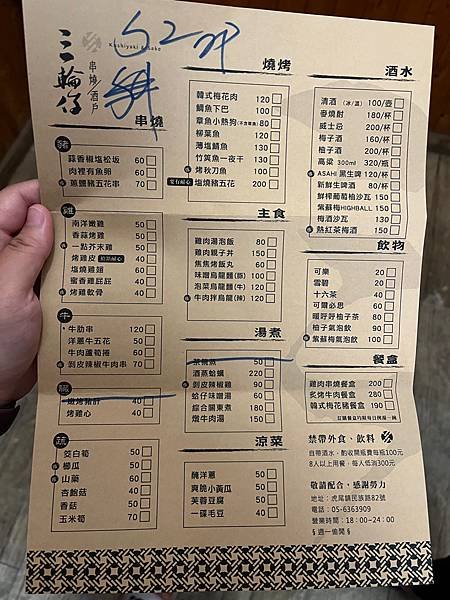 三輪仔
串燒/酒戶
Kushiyaki & Sake
串燒
豬
蒜香椒塩松坂 60
肉裡有魚卵 60
蔥鹽豬五花串 70
雞
南洋嫩雞 50
香蒜烤雞 50
一點芥末雞 50
烤雞皮 40
塩燒雞翅 60
蜜香雞屁屁 40
烤雞軟骨 40
牛
牛肋串 120
洋蔥牛五花 50
牛肉蘆筍捲 60
剝皮辣椒牛肉串 70
臟
嫩烤豬肝 40
烤雞心 40
蔬
筊白筍 50
櫛瓜 50
山藥 60
杏飽菇 40
香菇 50
玉米筍 70
燒烤
韓式梅花肉 120
鯛魚下巴 100
章魚小熱狗 80
柳葉魚 100
薄塩鯖魚 130
竹筴魚一夜干 130
烤秋刀魚 100
塩燒豬五花 200
主食
雞肉湯泡飯 80
雞肉親子丼 150
焦焦烤飯丸 60
味噌烏龍麵(豚) 100
泡菜烏龍麵(牛) 120
牛肉拌烏龍(辣) 120
湯煮
茶碗蒸 50
酒蒸蛤蠣 220
剝皮辣椒雞 90
蛤仔味噌湯 60
綜合關東煮 180
燉牛肉湯 150
涼菜
醃洋蔥 50
爽脆小黃瓜 50
芙蓉豆腐 50
一碟毛豆 40
酒水
清酒 (冰/溫) 100/壺
麥燒酎 180/杯
威士忌 200/杯
梅子酒 160/杯
柚子酒 200/杯
高粱 300ml 320/瓶
ASAHI 黑生啤 120/杯
新鮮生啤酒 80/杯
鮮榨葡萄柚沙瓦 150
紫蘇梅HIGHBALL 150
梅酒沙瓦 130
熱紅茶梅酒 150
飲物
可樂 20
雪碧 20
十六茶 40
可爾必思 60
暖呼呼柚子茶 80
柚子氣泡飲 90
紫蘇梅氣泡飲 100
餐盒
雞肉串燒餐盒 200
炙烤牛肉餐盒 280
韓式梅花豬餐盒 190
禁帶外食、飲料
自帶酒水，酌收開瓶費每瓶100元
8人以上用餐，每人低消300元
敬請配合、感謝勞力
地址：虎尾鎮民族路82號
電話：05-6363909
營業時間：18:00~24:00
§ 週一偷閒 §